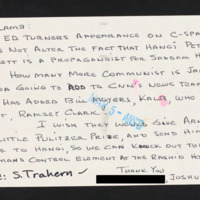 LAMB:
ED TURNERS APPEARANCE ON C-SPA
S NOT ALTER THE FACT THAT HANOI PET
ETT IS A PROPAGANDIST FOR SADDAM H
HOW MANY MORE COMMUNIST IS JA
DA GOING TO ADD TO CNN'S NEWS TEA
HAS ADDED BILL MOYERS, KALB, WHO
T, RAMSEY CLARK.
I WISH THEY WOULD GIVE ARN
LITTLE PULITZER PRIZE, AND SEND HIM
E TO HANOI, SO WE CAN KNOCK OUT TH
MANS CONTROL ELEMENT AT THE RASHID HO
THANK YOU
: S. Trahern
JOSHU